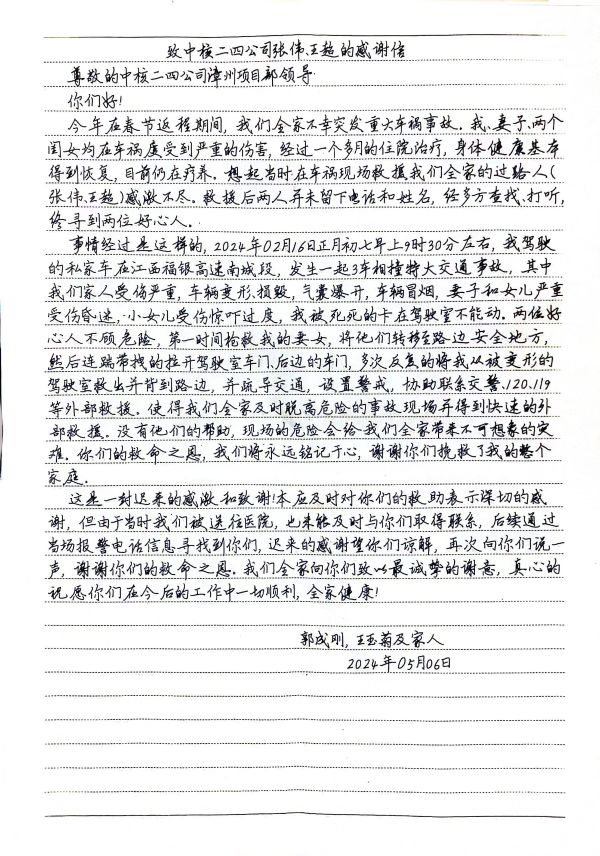 致中核二四公司张伟、王超的感谢信
尊敬的中核二四公司漳州项目部领导.
你们好!
今年在春节返程期间,我们全家不幸突发重大车祸事故.我、妻子、两个
闺女均在车祸度受到严重的伤害,经过一个多月的住院治疗,身体健康基本
得到恢复,目前仍在疗养.想起当时在车祸现场救援我们全家的过路人(
张伟、王超)感激不尽.救援后两人并未留下电话和姓名,经多方查找、打听,
终寻到两位好心人.
事情经过是这样的,2024年02月16日正月初七早上9时30分左右,我驾驶
的私家车在江西福银高速南城段,发生一起3车相撞特大交通事故,其中
我们家人受伤严重,车辆变形、损毁,气囊爆开,车辆冒烟,妻子和女儿严重
受伤昏迷.小女儿受伤惊吓过度,我被死死的卡在驾驶室不能动.两位好
心人不顾危险,第一时间抢救我的妻女,将他们转移至路边安全地方,
然后连踹带找的拉开驾驶室车门、后边的车门,多次反复的将我从被变形的
驾驶室救出并背到路边,并疏导交通,设置警戒,协助联系交警、120、119
等外部救援.使得我们全家及时脱离危险的事故现场并得到快速的外
部救援.没有他们的帮助,现场的危险会给我们全家带来不可想象的灾
难.你们的救命之恩,我们将永远铭记于心,谢谢你们挽救了我的整个
家庭.
这是一封迟来的感激和致谢!本应及时对你们的救助表示深切的感
谢,但由于当时我们被送往医院,也未能及时与你们取得联系,后续通过
当场报警电话信息寻找到你们,迟来的感谢望你们谅解,再次向你们说一
声,谢谢你们的救命之恩.我们全家向你们致以最诚挚的谢意,真心的
祝愿你们在今后的工作中一切顺利,全家健康!
郭成刚,王玉菊及家人
2024年05月06日